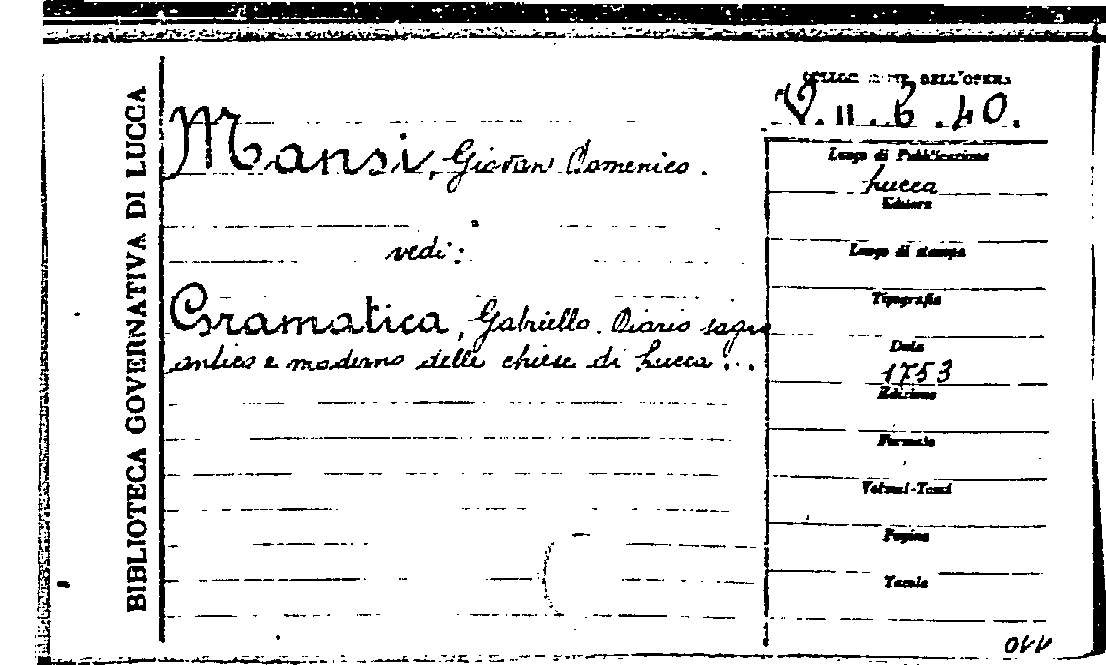 BIBLIOTECA GOVERNATIVA DI LUCCA
Mansi, Giovan Domenico.
vedi:
Gramatica, Gabriello. Diario sagro
antico e moderno delle chiese di Lucca...
COLLOCAZIONE DELL'OPERA
V. II. 6. 40.
Luogo di Pubblicazione
Lucca
Editore
Luogo di stampa
Tipografia
Data
1753
Edizione
Formato
Volumi-Tomi
Pagine
Tavole